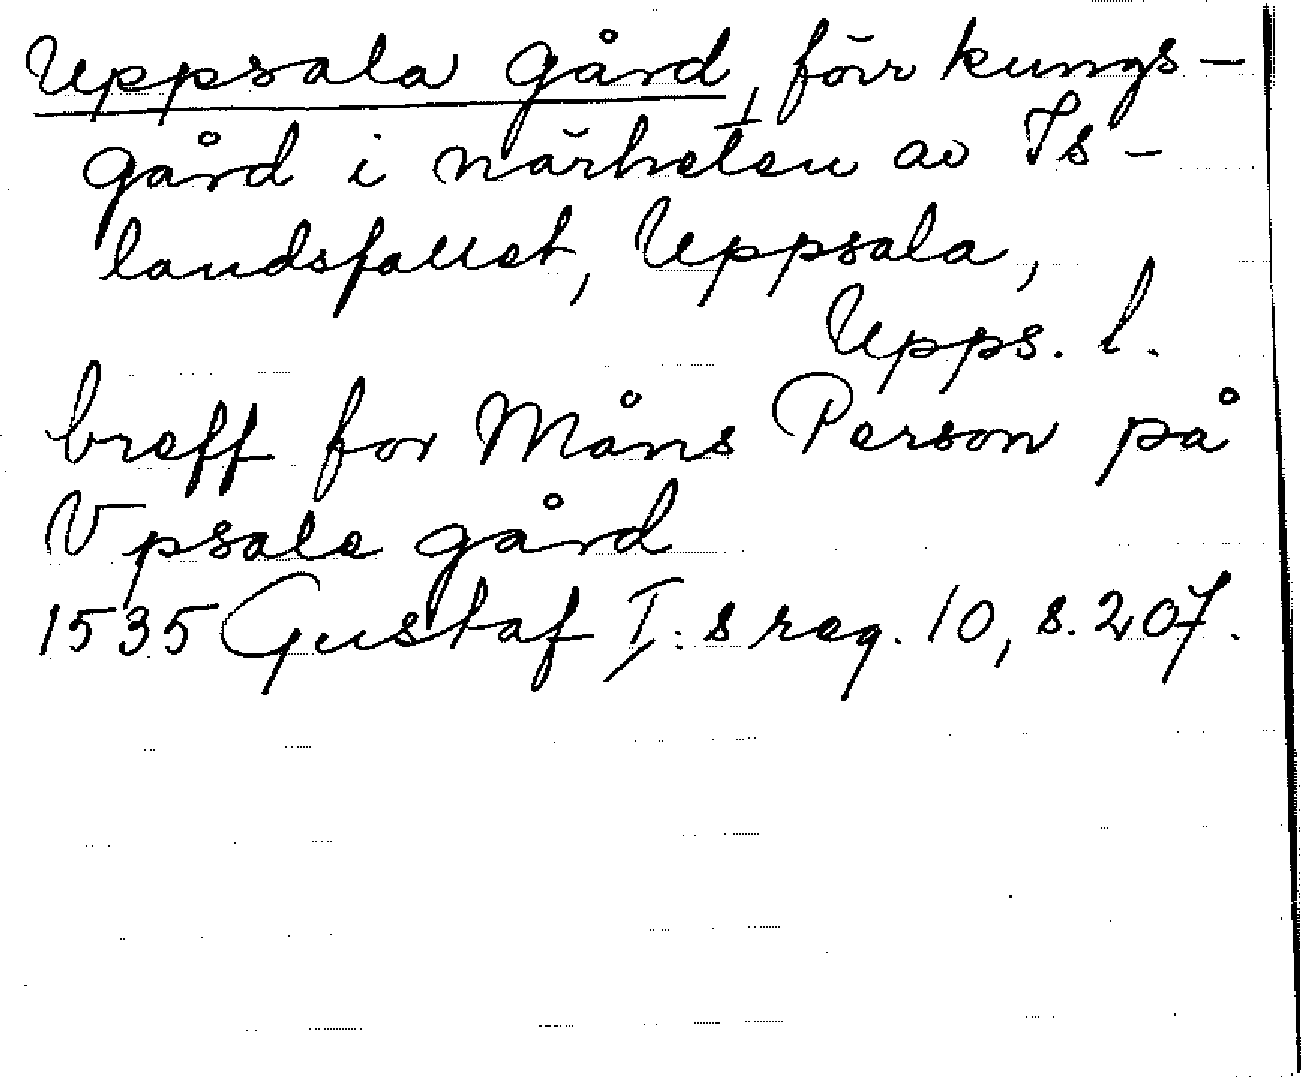 Uppsala gård, förr kungs-
gård i närheten av Is-
landsfallet, Uppsala,
Upps. l.
breff for Måns Person på
Vpsala gård
1535 Gustaf I:s reg. 10, s. 207.